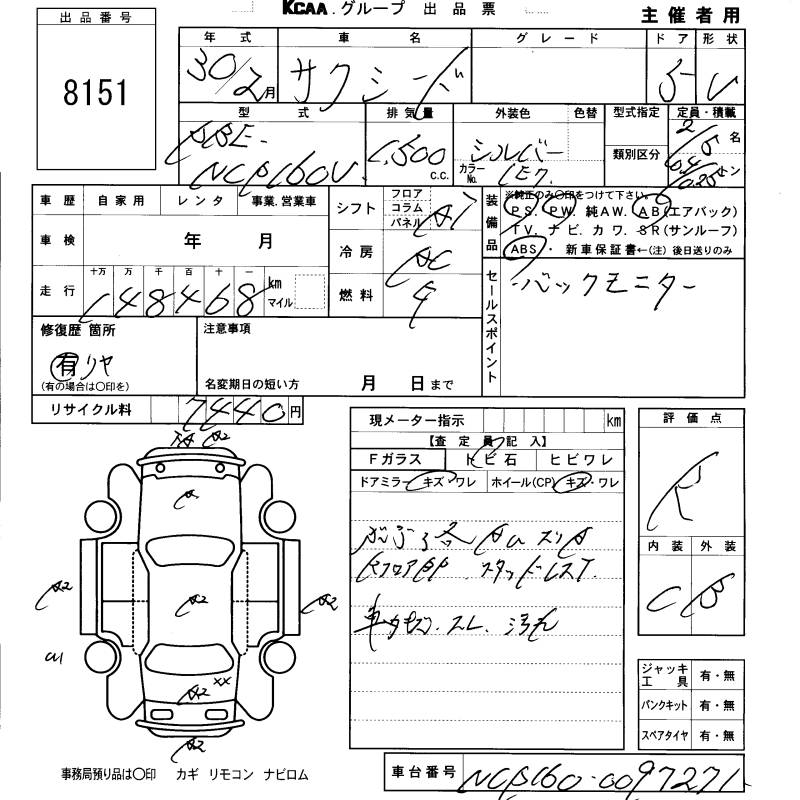 KCAA.グループ 出品票
主催者用
出品番号
8151
年式 車名 グレード ドア 形状
30/2月 サクシード 5 V
型式 排気量 外装色 色替 型式指定 定員・積載
DBE-
NCP160V 1,500 c.c. シルバー カラーNo. 1E7 類別区分 2/5名
0.4/0.25トン
車歴 自家用 レンタ 事業.営業車
シフト フロア コラム パネル AT
装備品 ※純正のみ〇印をつけて下さい。
PS. PW. 純AW. AB(エアバック)
TV. ナビ. カワ. SR(サンルーフ)
ABS・ 新車保証書←(注) 後日送りのみ
車検 年 月
冷房 AC
走行 十万 万 千 百 十 一 km マイル
148468
燃料
セールスポイント
・バックモニター
修復歴 箇所
有 リヤ
(有の場合は〇印を)
注意事項
名変期日の短い方 月 日まで
リサイクル料 7440円
現メーター指示 km
【査定員記入】
Fガラス トビ石 ヒビワレ
ドアミラー キズ・ワレ ホイール(CP) キズ・ワレ
評価点
R
内装 外装
C B
A2
A
A2
A2
A2
A2 XX
A2
スタッドレスT.
ジャッキ工具 有・無
パンクキット 有・無
スペアタイヤ 有・無
事務局預り品は〇印 カギ リモコン ナビロム
車台番号 NCP160-0097271